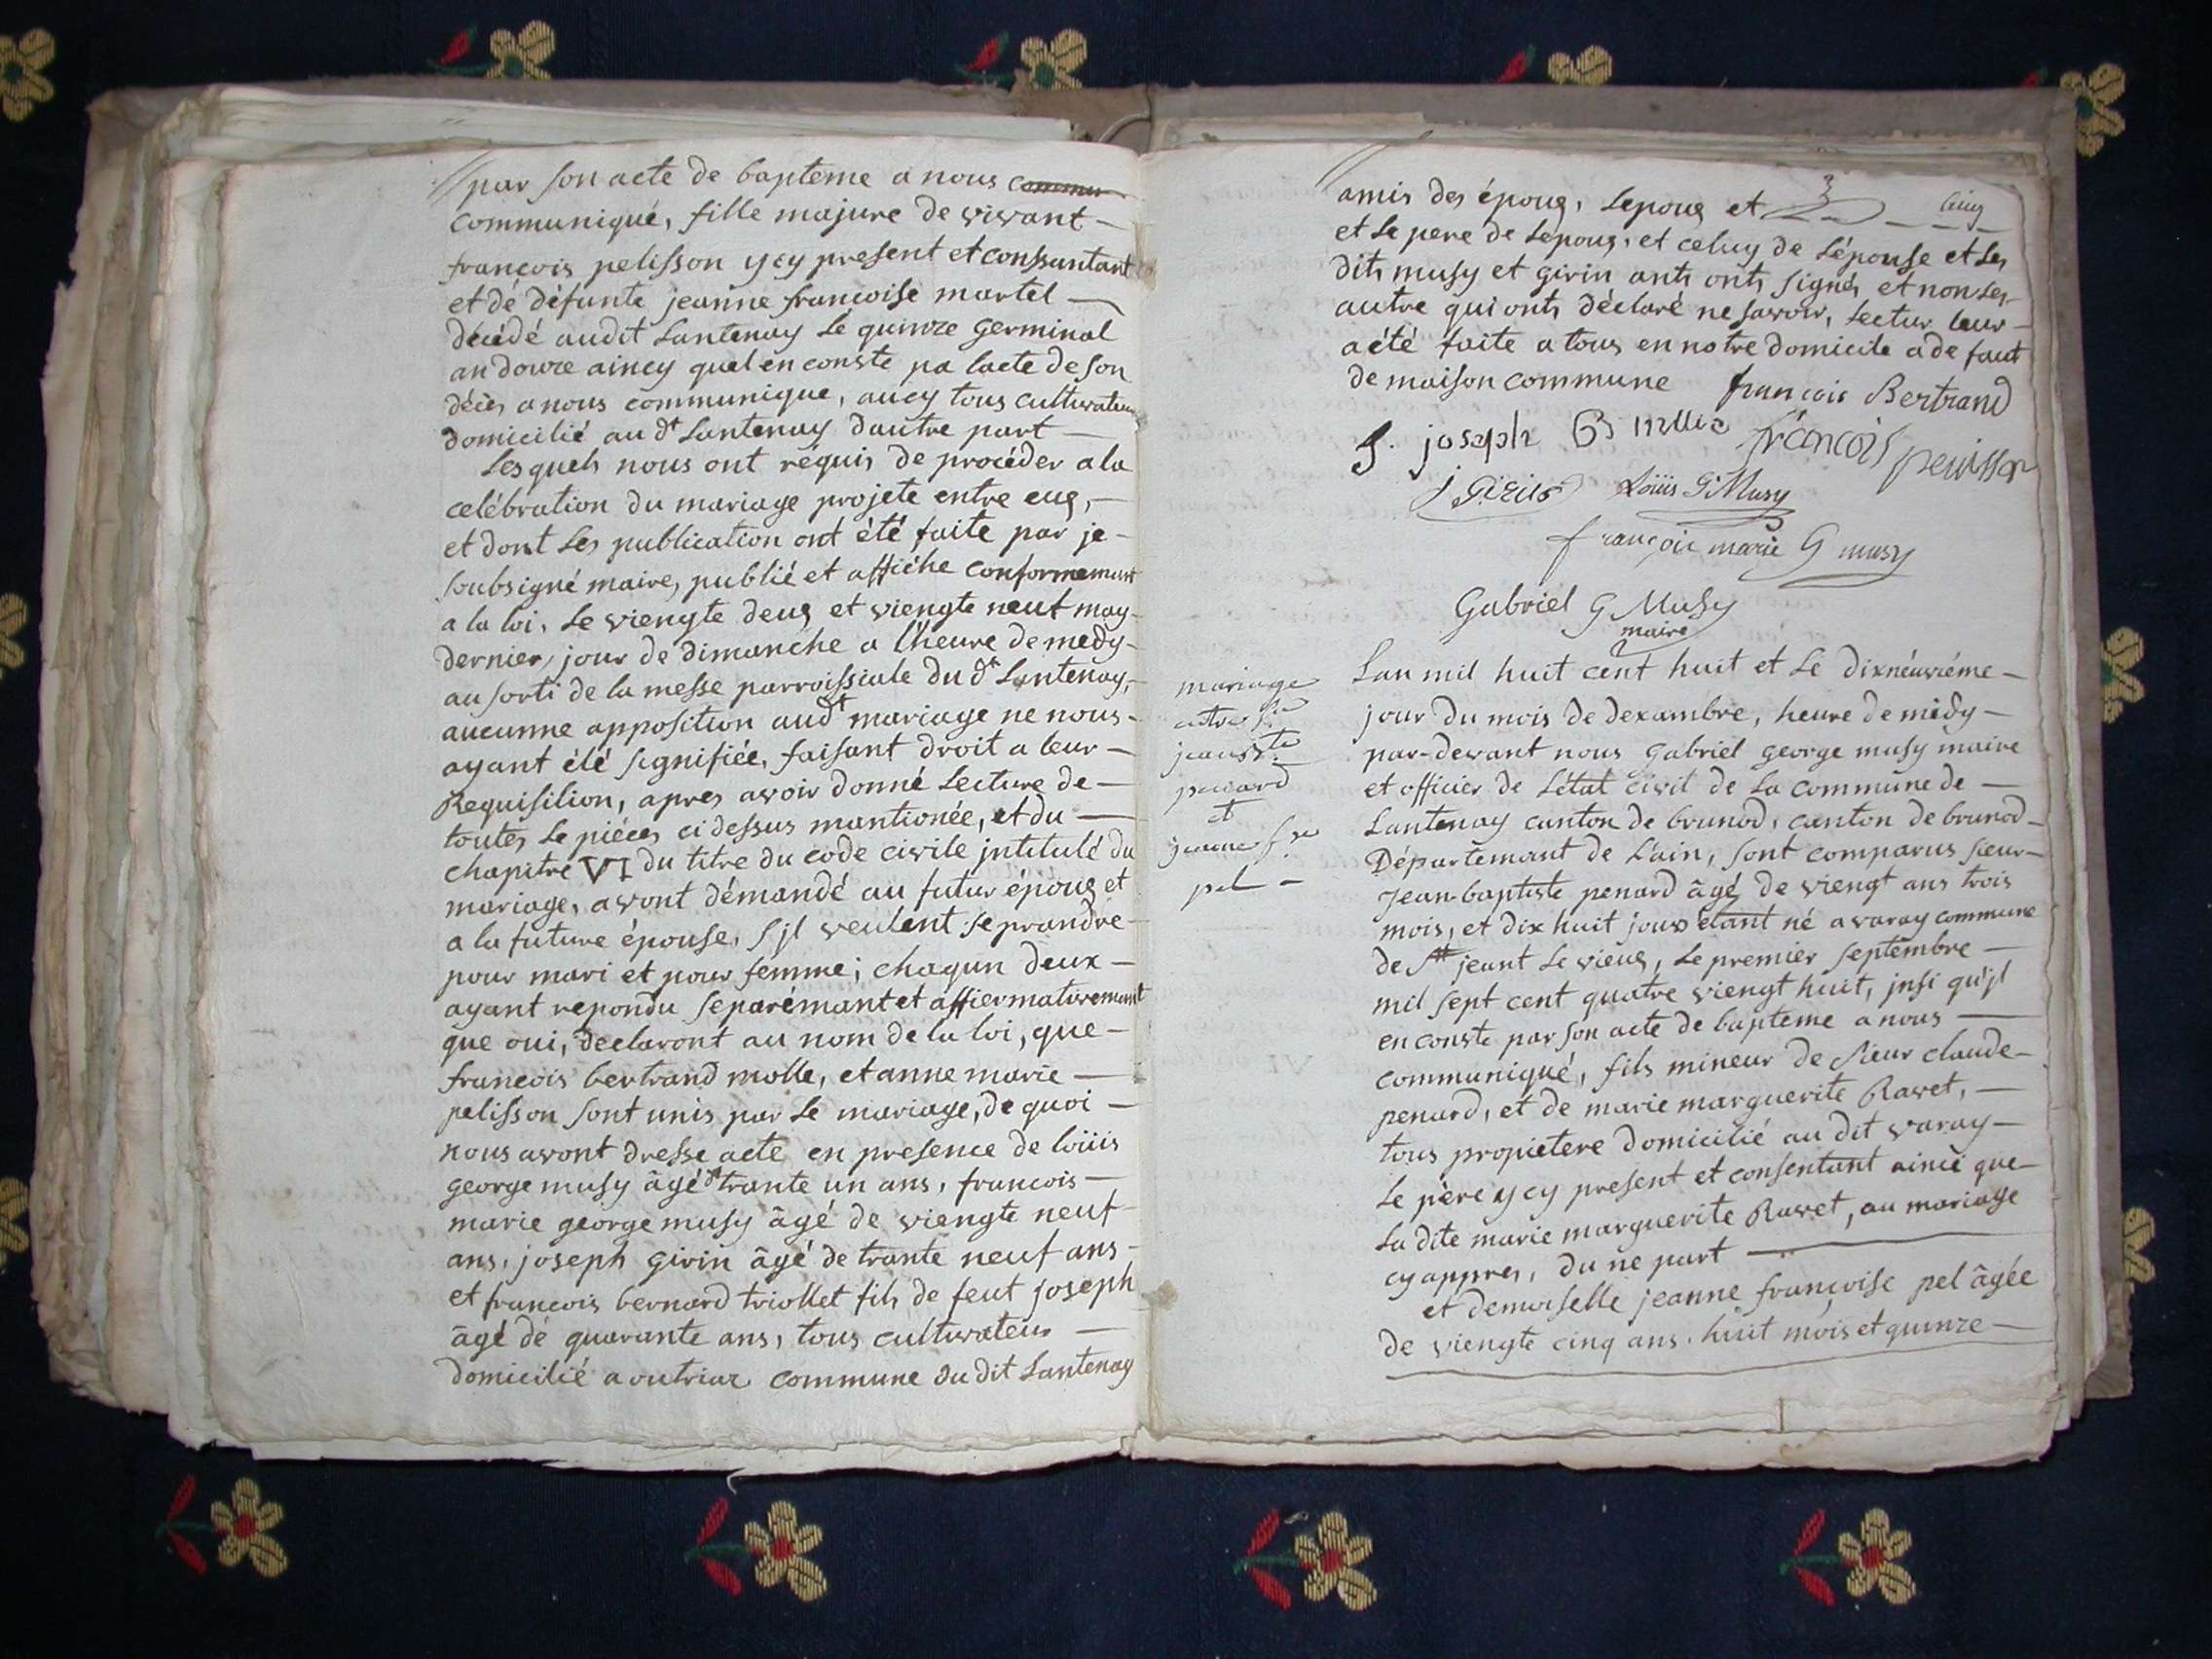 par son acte de bapteme a nous commu
communiqué, fille majure de vivant
francois pelisson ycy present et consantant
et dé défunte jeanne francoise martel
décédé audit Lantenay le quinze germinal
an douze aincy quel en conste pa lacte de son
décés a nous communique, aucy tous cultivateur
domicilié au dt Lantenay dautre part
Lesquels nous ont réquis de procéder a la
celébration du mariage projete entre eux,
et dont les publication ont été faite par je
soubsigné maire, publié et affiché conformemant
a la loi, le viengte deux et viengte neuf may
dernier, jour de dimanche a l'heure de medy
au sorti de la messe parroissiale du dt Lantenay,
aucunne apposition audt mariage ne nous
ayant été signifiée, faisant droit a leur
Requisition, apres avoir donné lecture de
toutes le piéces ci dessus mantionée, et du
chapitre VI du titre du code civile jntitulé du
mariage, avont démandé au futur époux et
a la future épouse, sjl veulent se prandre
pour mari et pour femme; chaqun deux
ayant repondu separémant et affiermativemant
que oui, declaront au nom de la loi, que
francois bertrand molle, et anne marie
pelisson sont unis par le mariage, de quoi
nous avont dresse acte en presence de loüis
george musy âgé dt trante un ans, francois
marie george musy âgé de viengte neuf
ans, joseph girin âgé de trante neuf ans
et francois bernard triollet fils de feut joseph
âgé dé quarante ans, tous cultivateur
domicilié a outriaz commune du dit Lantenay
amis des époux, Lepoux et
et le pere de Lepoux, et celuy de Lépouse et les
dits musy et girin ants onts signés et non les
autre qui onts déclaré ne savoir, lectur leur
a été faite a tous en notre domicile a de faut
de maison commune francois Bertrand
joseph
françois
Loüis G Musy
françois marie G musy
Gabriel G Musy
maire
mariage
entre sr
jean bte
penard
et
jeanne fse
pel
Lan mil huit cent huit et le dixnéuviéme
jour du mois de dexambre, heure de midy
par-devant nous Gabriel george musy maire
et officier de Létat civil de la commune de
Lantenay canton de brunod, canton de brunod
Départemant de L'ain, sont comparus sieur
Jean-baptiste penard âgé de viengt ans trois
mois, et dix huit jours étant né a varay commune
de St jeant le vieux, le premier septembre
mil sept cent quatre viengt huit, jnsi qu'jl
en conste par son acte de bapteme a nous
communiqué, fils mineur de sieur claude
penard, et de marie marguerite Ravet,
tous propietere domicilié au dit varay
le père y cy present et consentant ainci que
La dite marie marguerite Ravet, au mariage
cy appres, du ne part
et demoiselle jeanne françoise pel âgée
de viengte cinq ans huit mois et quinze